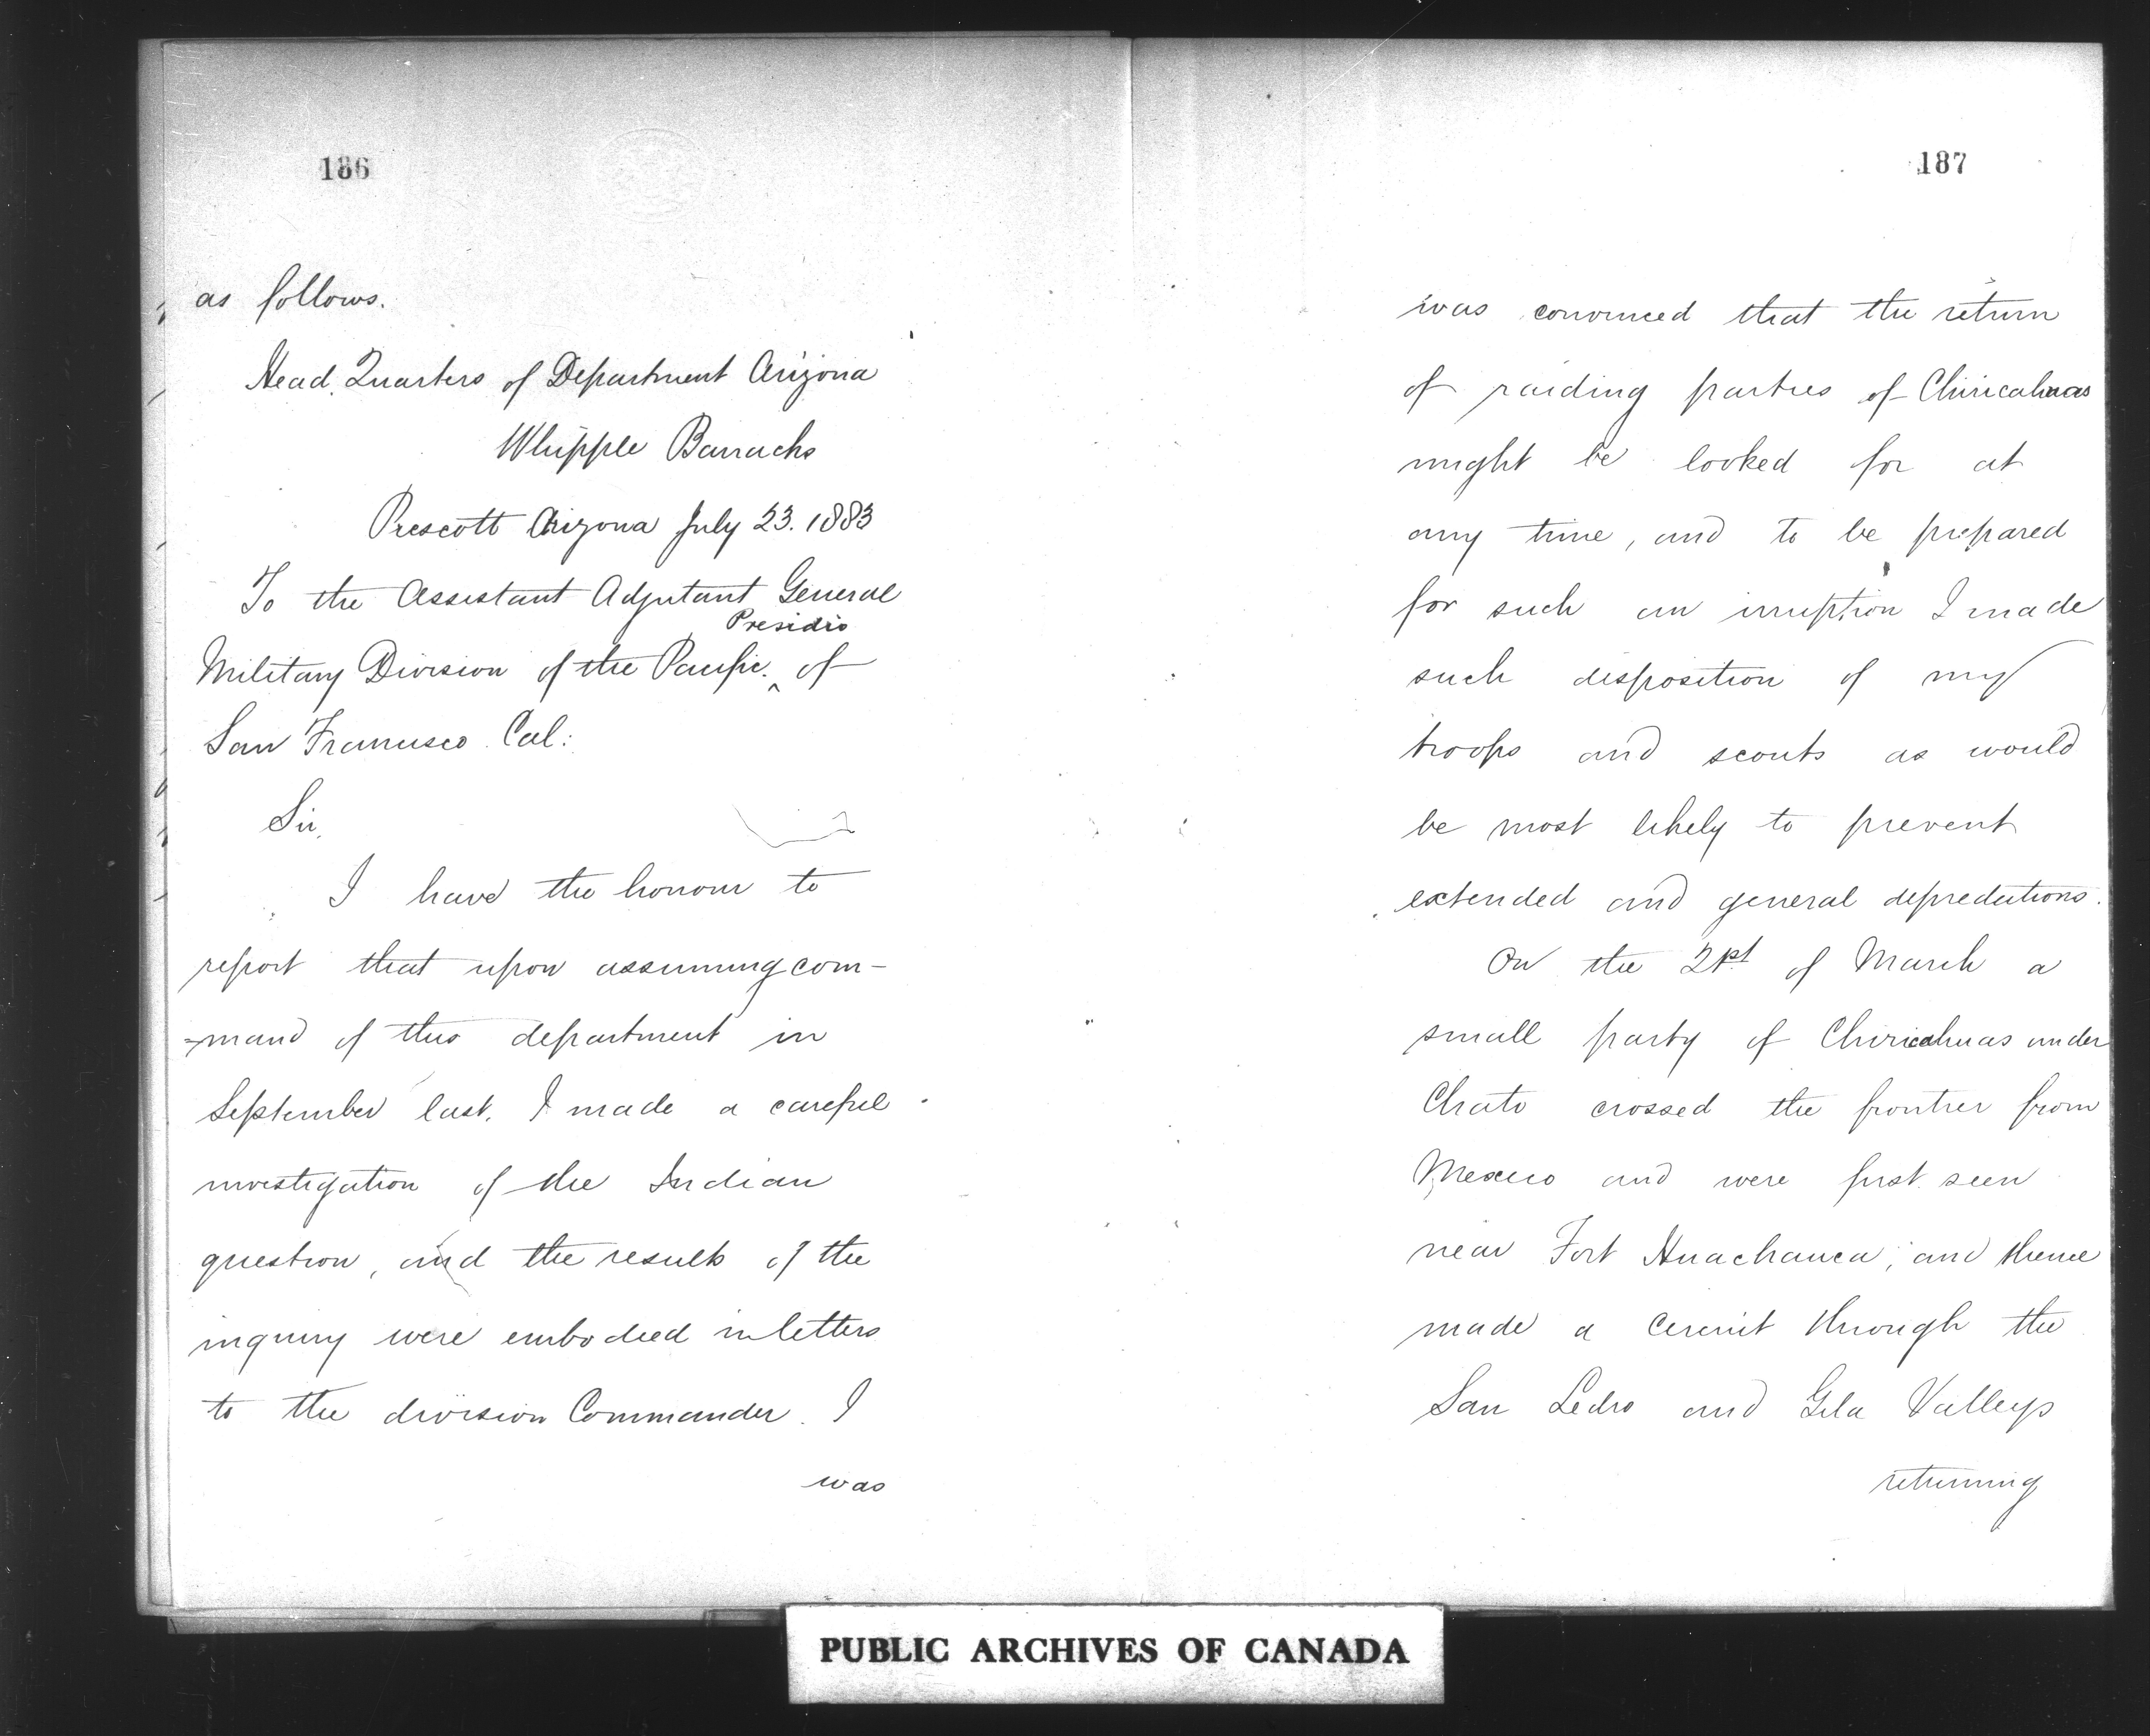 186
as follows.
Head Quarters of Department Arizona
Whipple Barracks
Prescott Arizona July 23. 1883
To the Assistant Adjutant General
Presidio
Military Division of the Pacific. ^ of
San Francisco Cal:
Sir,
I have the honour to
report that upon assuming com-
-mand of this department in
September last, I made a careful
investigation of the Indian
question, and the results of the
inquiry were embodied in letters
to the division Commander. I
was
187
was convinced that the return
of raiding parties of Chiricahuas
might be looked for at
any time, and to be prepared
for such an irruption I made
such disposition of my
troops and scouts as would
be most likely to prevent
extended and general depredations.
On the 21st of March a
small party of Chiricahuas under
Chato crossed the frontier from
Mexico and were first seen
near Fort Huachauca, and thence
made a circuit through the
San Pedro and Gila Valleys
returning
PUBLIC ARCHIVES OF CANADA